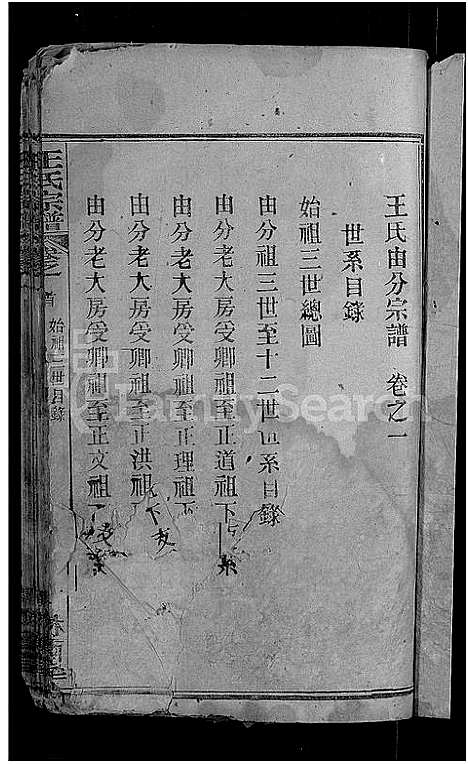 王氏由分宗譜 卷之一
世系目錄
始祖三世總圖
由分祖三世至十二世世系目錄
由分老大房受卿祖至正道祖下 系
由分老大房受卿祖至正理祖下
由分老大房受卿祖至正洪祖下支
由分老大房受卿祖至正文祖下支系
王氏宗譜 卷之一 首 始祖三世目錄
FamilySearch